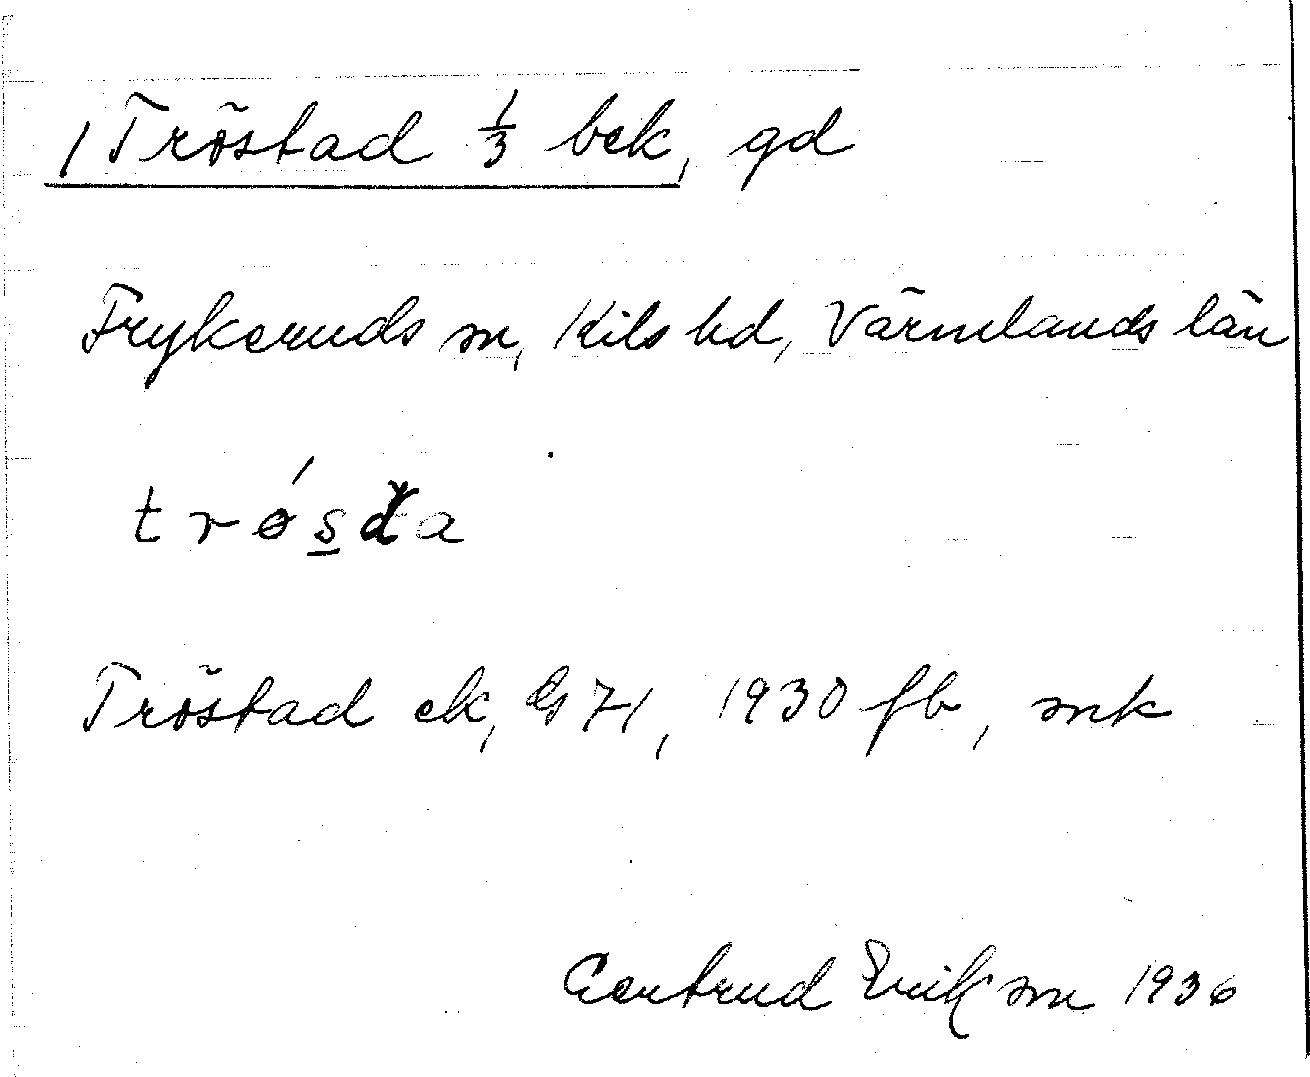 /Tröstad 1/3 bek, gd
Frykeruds sn, Kils hd, Värmlands län
trǿs̲da
Tröstad ek, G 71, 1930 fb, mk
Gertrud Erikson 1936